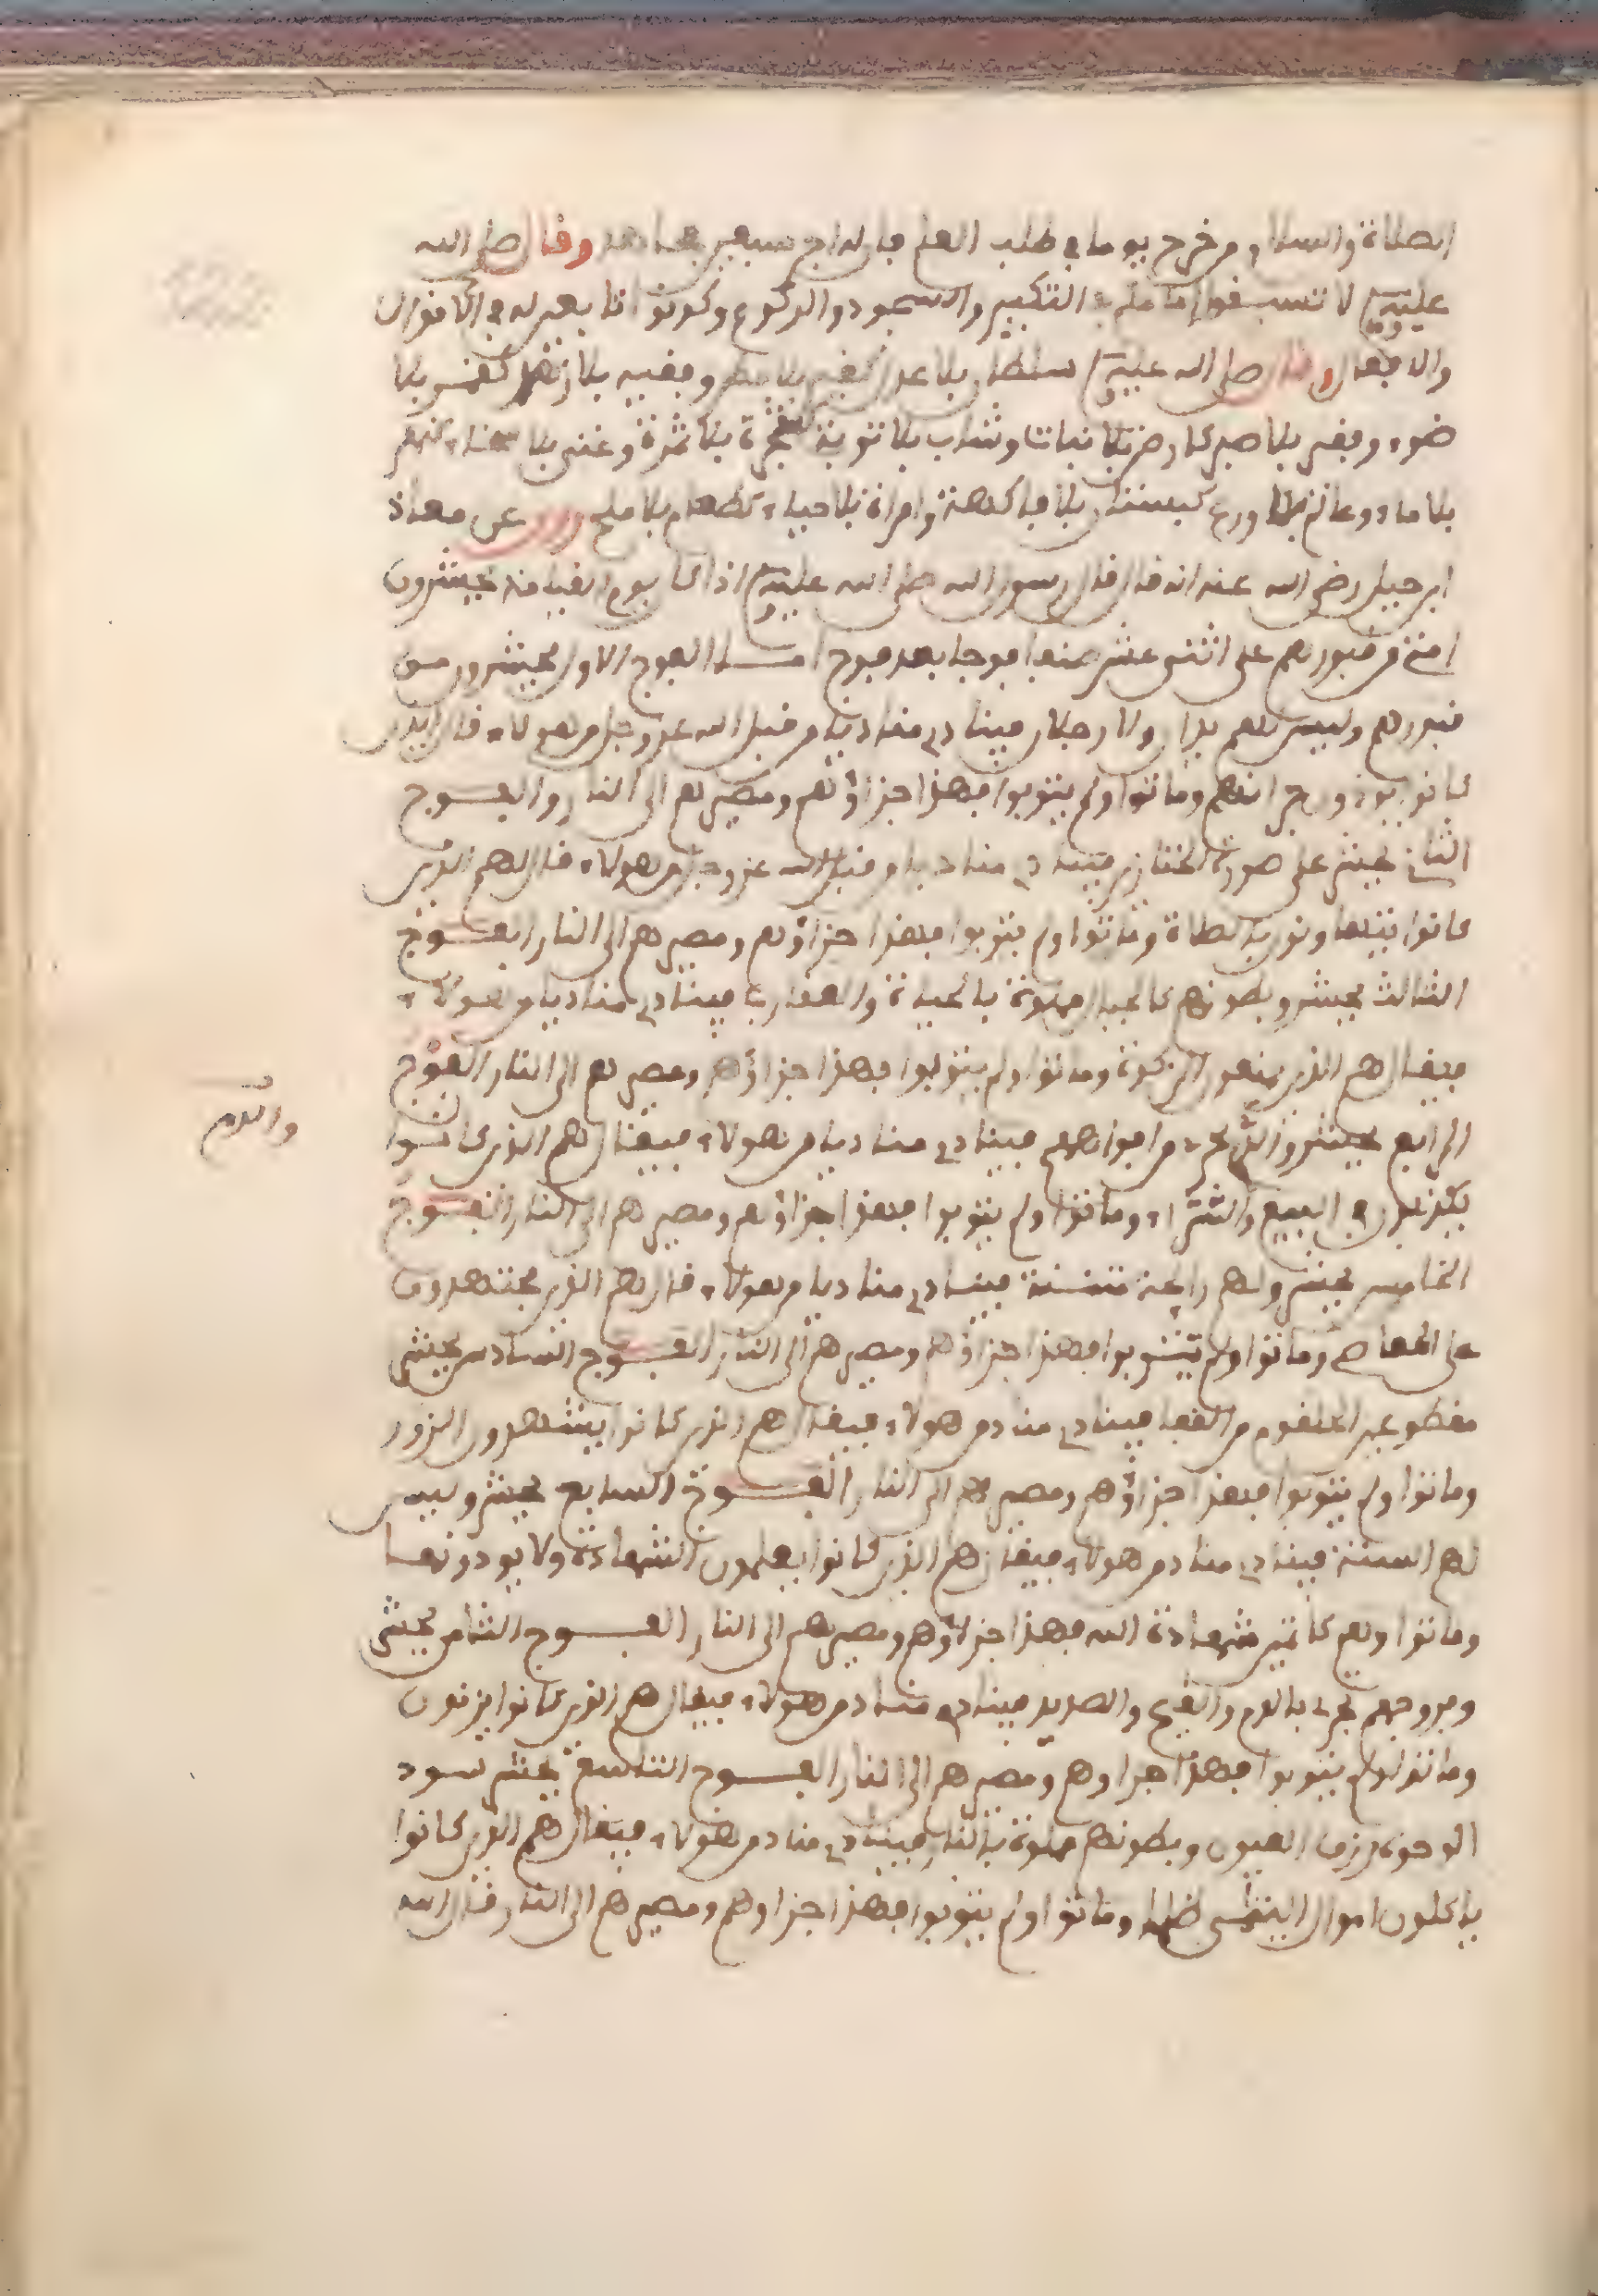 الصلاة والسلام من خرج يوما في طلب العلم فله اجر سبعين مجاهد وقال صلى الله
عليه وسلم لا تسبقوا امامكم في التكبير والسجود والركوع وكونوا تابعين له في الاقوال
والافعال وقال صلى الله عليه وسلم سلطان بلا عدل كغيم بلا مطر وفقيه بلا زهد كشمس بلا
ضوء وفقير بلا صبر كارض بلا نبات وشاب بلا توبة كشجرة بلا ثمرة وغني بلا سخاء كنهر
بلا ماء وعالم بلا ورع كبستان بلا فاكهة وامراة بلا حياء كطعام بلا ملح وروي عن معاذ
ابن جبل رضي الله عنه انه قال قال رسول الله صلى الله عليه وسلم اذا كان يوم القيامة يحشرون
امتي من قبورهم على اثنى عشر صنفا فوجا بعد فوج امــا الفوج الاول يحشرون من
قبورهم وليس لهم يدان ولا رجلان فينادي مناديا من قبل الله عز وجل من هولاء قال الذين
كانوا يوذون جيرانهم وماتوا ولم يتوبوا فهذا جزاؤهم ومصيرهم الى النار والفــوج
الثاني يحشر على صورة الخنازير فينادي مناديا من قبل الله عز وجل من هولاء قال هم الذين
كانوا يتهاونون بالصلاة وماتوا ولم يتوبوا فهذا جزاؤهم ومصيرهم الى النار الفــوج
الثالث يحشرون بطونهم كالجبال مملوة بالحياة والعقارب فينادي مناديا من هولاء
فيقال هم الذين يمنعون الزكوة وماتوا ولم يتوبوا فهذا جزاؤهم ومصيرهم الى النار الفوج
الرابع يحشرون الدم يجري من افواههم فينادي مناديا من هولاء فيقال هم الذين كانــوا
والدم
يكذبون في البيع والشراء وماتوا ولم يتوبوا فهذا جزاؤهم ومصيرهم الى النار الفــوج
الخامس يحشرون لهم رايحة منتنة فينادي مناديا من هولاء قال هم الذين يجتهدون
على المعاصي وماتوا ولم يتوبوا فهذا جزاؤهم ومصيرهم الى النار الفــوج السادس يحشر
مقطوعين الحلقوم من القفا فينادي مناد من هولاء فيقال هم الذين كانوا يشهدون الزور
وماتوا ولم يتوبوا فهذا جزاؤهم ومصيرهم الى النار الفــوج السابع يحشرون ليس
لهم السنة فينادي مناد من هولاء فيقال هم الذين كانوا يعلمون الشهادة ولا يودونهــا
وماتوا وهم كاتمين شهادة الله فهذا جزاؤهم ومصيرهم الى النار الفــوج الثامن يحشر
وفروجهم يجري بالدم والقيح والصديد فينادي مناد من هولاء فيقال هم الذين كانوا يزنون
وماتوا ولم يتوبوا فهذا جزاوهم ومصيرهم الى النار الفــوج التاسع يحشر سود
الوجوه زرق العيون وبطونهم مملوة بالنار فينادي مناد من هولاء فيقال هم الذين كانوا
ياكلون اموال اليتمى ظلما وماتوا ولم يتوبوا فهذا جزاوهم ومصيرهم الى النار قال الله